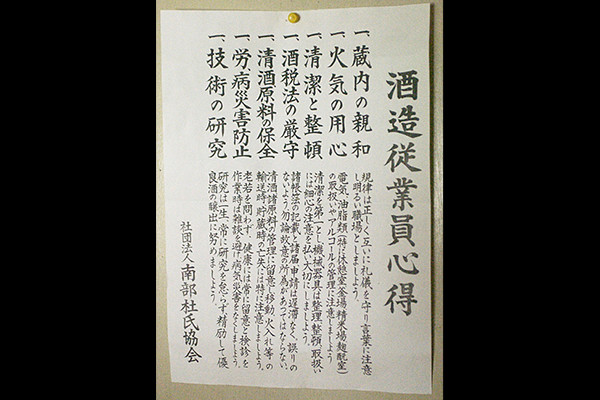 酒造従業員心得
一、蔵内の親和
規律は正しく互いに礼儀を守り言葉に注意
し明るい職場としましょう。
一、火気の用心
電気、油脂類(特に休憩室、釜場、精米場、麹配室)
の取扱いやアルコールの管理に注意しましょう
一、清潔と整頓
清潔を第一とし機械器具は整理整頓、取扱い
には細心の注意を払い大切にしましょう。
一、酒税法の厳守
諸帳法の記載と諸届申請は遅滞なく、誤りの
ないよう、勿論故意の所為があってはならない。
一、清酒原料の保全
清酒諸原料の管理に留意し移動、火入れ等の
輸送時、貯蔵時の亡失には特に注意しましょう。
一、労、病災害防止
老若を問わず、健康には常に留意と検診を
作業時は雑談を避け病気、災害をなくしましょう。
一、技術の研究
研究は一生、常に研究を怠らず、精励して優
良酒の醸出に努めましょう。
社団法人 南部杜氏協会